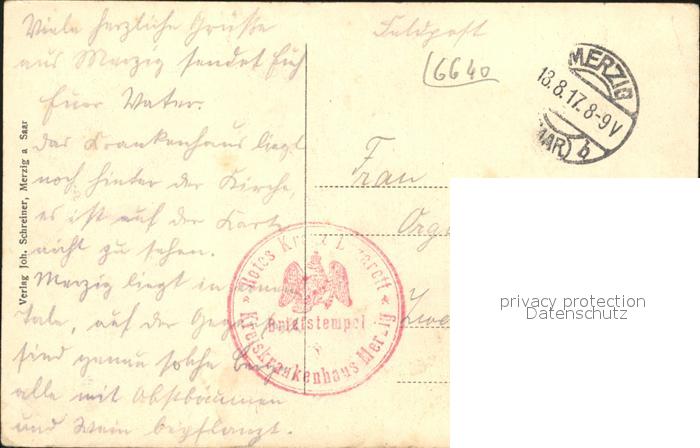 Viele herzliche Grüße
aus Merzig sendet Euch
Euer Vater.
das Krankenhaus liegt
noch hinter der Kirche,
es ist auf der Karte
nicht zu sehen.
Merzig liegt in
Tale, auf der
sind genau solche
alle mit Obstbäumen
und Wein bepflanzt.
Feldpost
6640
MERZIG
13.8.17. 8-9V
(SAAR) b
Frau
Verlag Joh. Schreiner, Merzig a Saar
Rotes Kreuz Lazarett
Briefstempel
Kreiskrankenhaus Merzig
privacy protection
Datenschutz